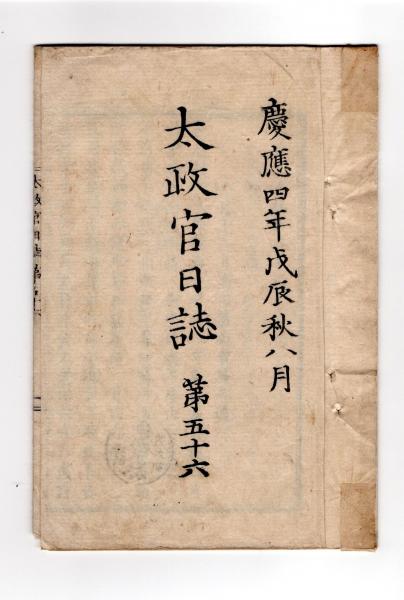 慶應四年戊辰秋八月
太政官日誌 第五十六
太政官日誌第五十六